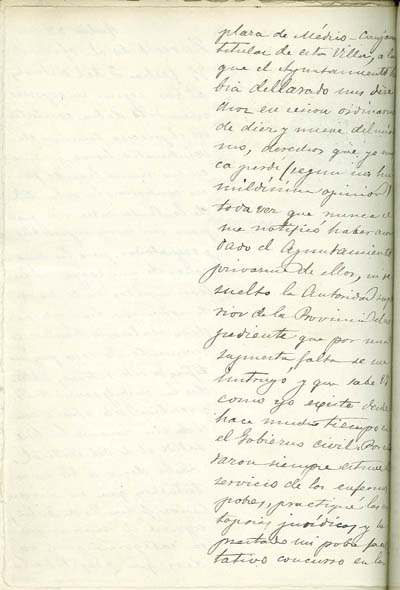 plaza de Médico-Cirujano
titular de esta Villa, a lo
que el Ayuntamiento ha
bia declarado mis dere
chos en sesion ordinaria
de diez y nueve del mis
mo, derechos que yo nun
ca perdí (segun mi hu
mildisima opinion)
toda vez que nunca se
me notificó haber acor
dado el Ayuntamiento
privarme de ellos, ni re
suelto la Autoridad supe
rior de la Provincia el es
pediente que por mi
supuesta falta se me
instruyó, y que sabe V.
como yo existe desde
hace mucho tiempo en
el Gobierno civil. Por
razon siempre estuve al
servicio de los enfermos
pobres, practiqué las au
topsias jurídicas y he
prestado mi pobre facul
tativo concurso en las